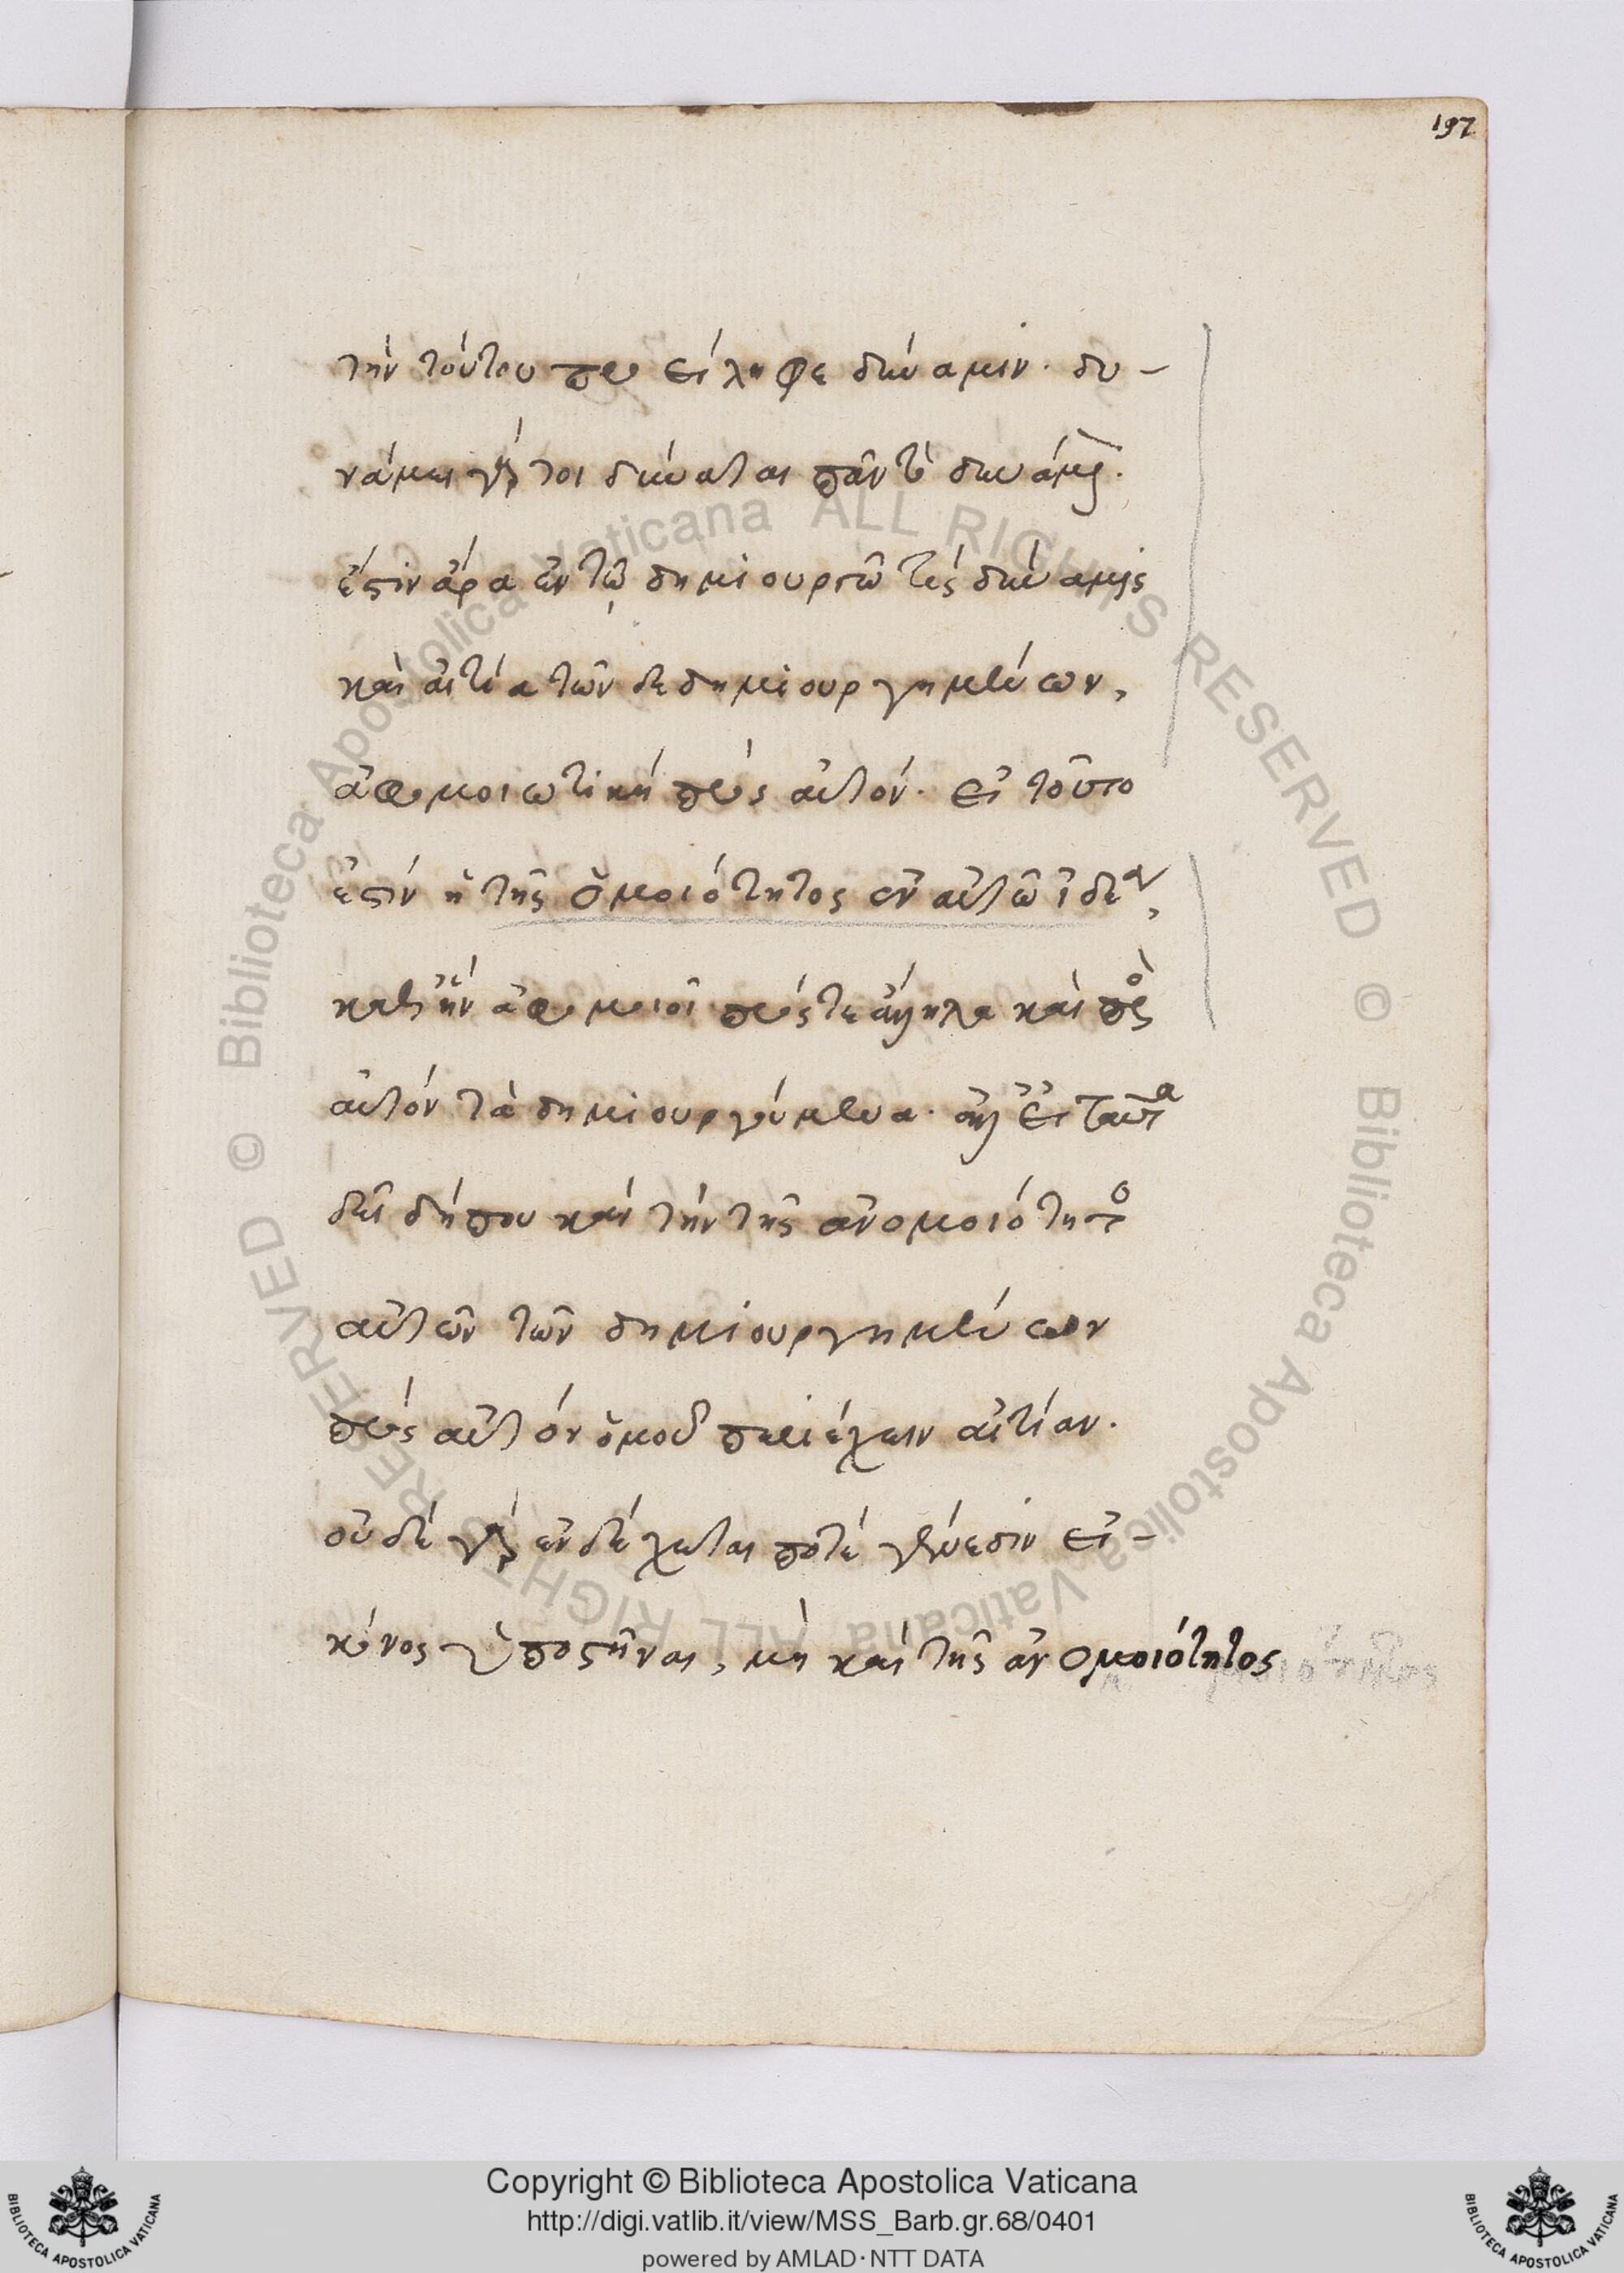 197
τὴν τούτου προείληφε δύναμιν· δυ-
νάμει γάρ τοι δύναται πᾶν τὸ δυνάμενον·
ἔστιν ἄρα ἐν τῷ δημιουργῶ τίς δύναμις
καὶ αἰτία τῶν δεδημιουργημένων,
ἀφομοιωτική πρός αὐτόν· εἰ τοῦτο
ἐστίν ἡ τῆς ὁμοιότητος ἐν αὐτῶ ἰδέα,
καθ' ἥν ἀφομοιοῖ πρός τε ἄλληλα καὶ πρὸς
αὐτόν τὰ δημιουργούμενα· ἀλλ' εἰ ταῦτα
δεῖ δήπου καὶ τὴν τῆς ἀνομοιότητος
αὐτῶν τῶν δημιουργημένων
πρός αὐτόν ὁμοῦ περιέχειν αἰτίαν.
οὐδέ γάρ ἐνδέχεται ποτέ γένεσιν εἰ-
κόνος ὑποστῆναι, μὴ καὶ τῆς ἀνομοιότητος
Copyright © Biblioteca Apostolica Vaticana
http://digi.vatlib.it/view/MSS_Barb.gr.68/0401
powered by AMLAD·NTT DATA
BIBLIOTECA APOSTOLICA VATICANA
BIBLIOTECA APOSTOLICA VATICANA
© Biblioteca Apostolica Vaticana ALL RIGHTS RESERVED © Biblioteca Apostolica Vaticana ALL RIGHTS RESERVED